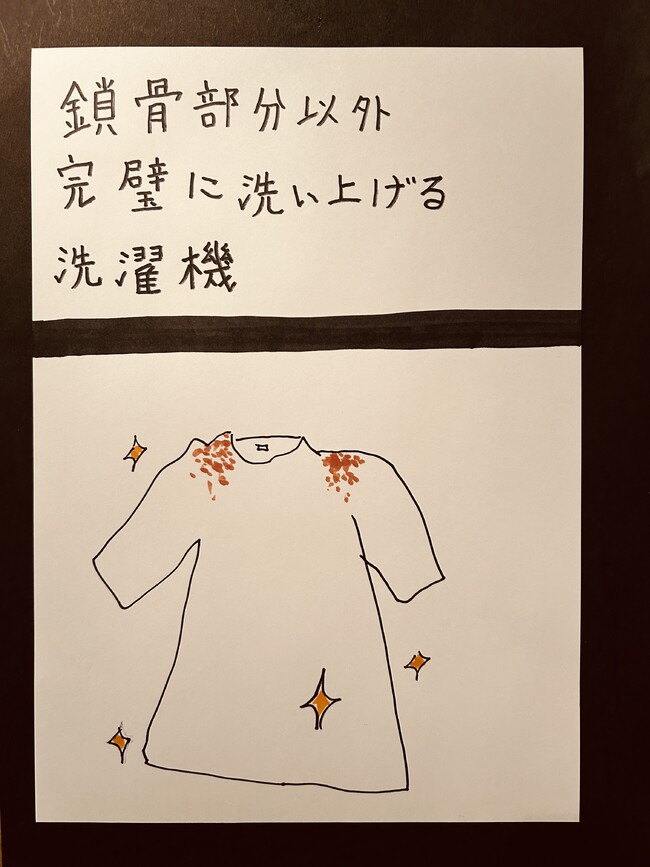 鎖骨部分以外
完璧に洗い上げる
洗濯機